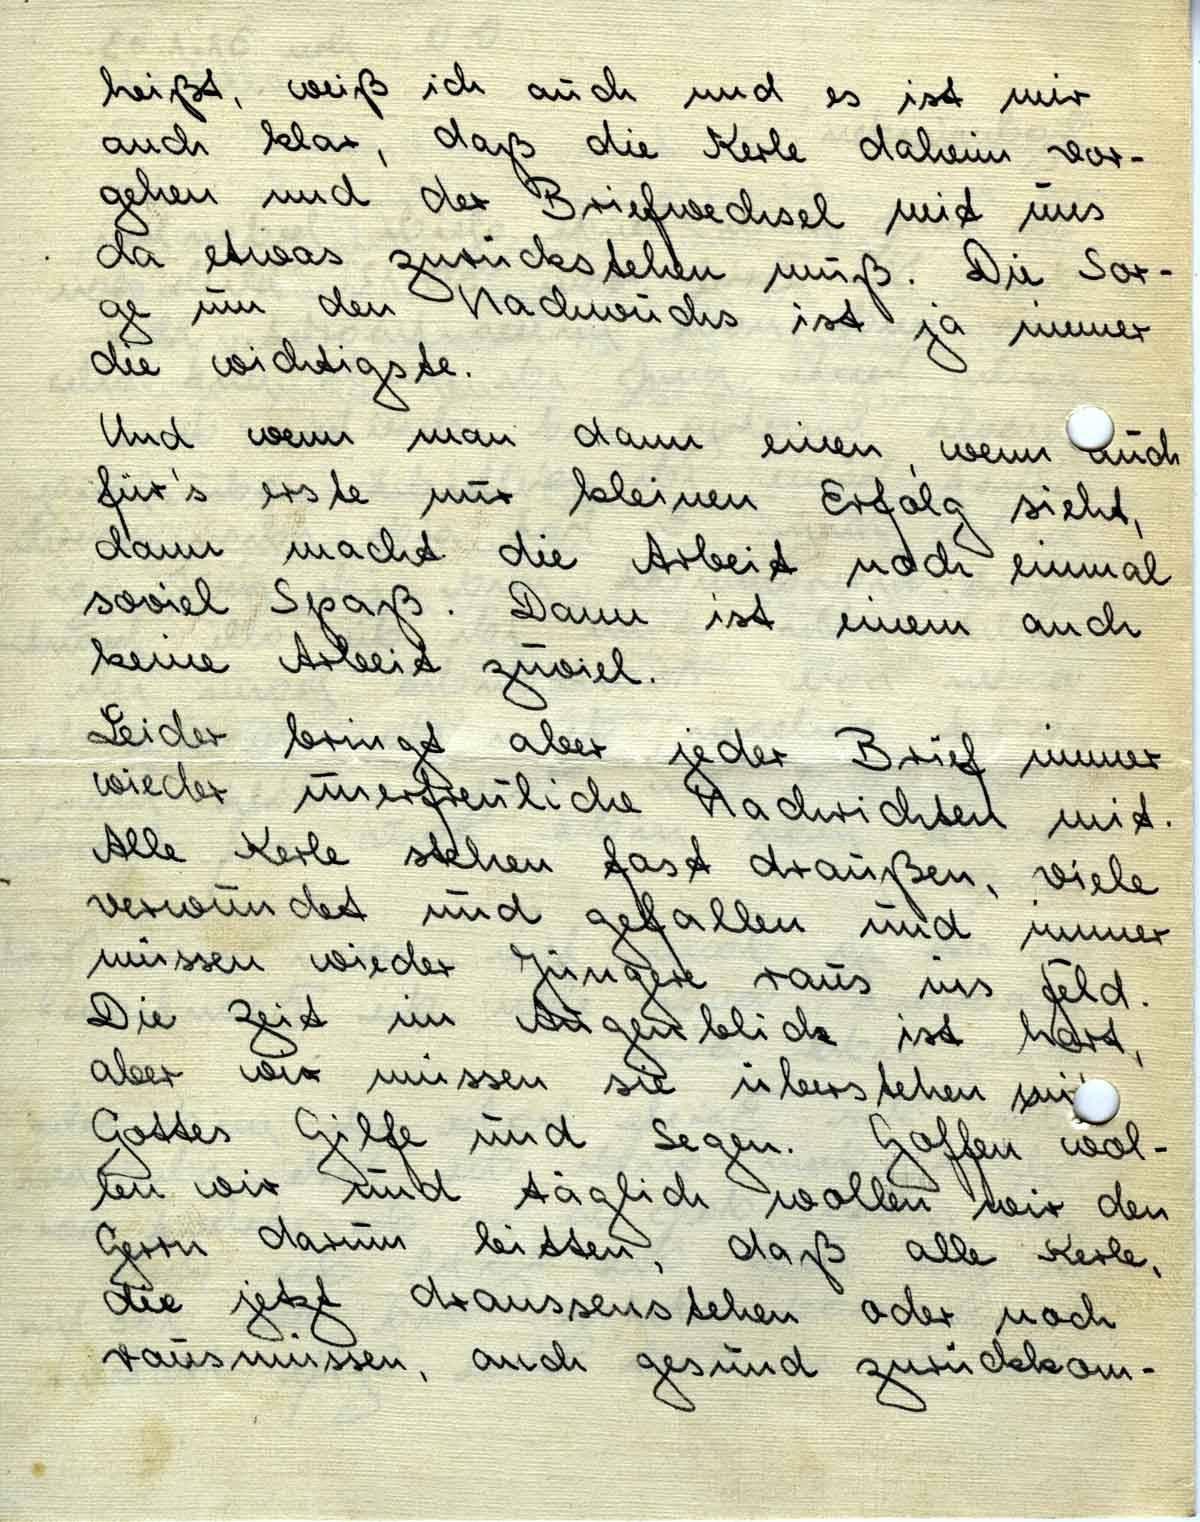 heißt, weiß ich auch und es ist mir
auch klar, daß die Kerle daheim vor-
gehen und der Briefwechsel mit uns
da etwas zurückstehen muß. Die Sor-
ge um den Nachwuchs ist ja immer
die wichtigste.
Und wenn man dann einen, wenn auch
für's erste nur kleinen Erfolg sieht,
dann macht die Arbeit noch einmal
soviel Spaß. Dann ist einem auch
keine Arbeit zuviel.
Leider bringt aber jeder Brief immer
wieder unerfreuliche Nachrichten mit.
Alle Kerle stehen fast draußen, viele
verwundet und gefallen und immer
müssen wieder Jüngere raus ins Feld.
Die Zeit im Augenblick ist hart,
aber wir müssen sie überstehen mit
Gottes Hilfe und Segen. Hoffen wol-
len wir und täglich wollen wir den
Herrn darum bitten, daß alle Kerle,
die jetzt draussenstehen oder noch
rausmüssen, auch gesund zurückkom-